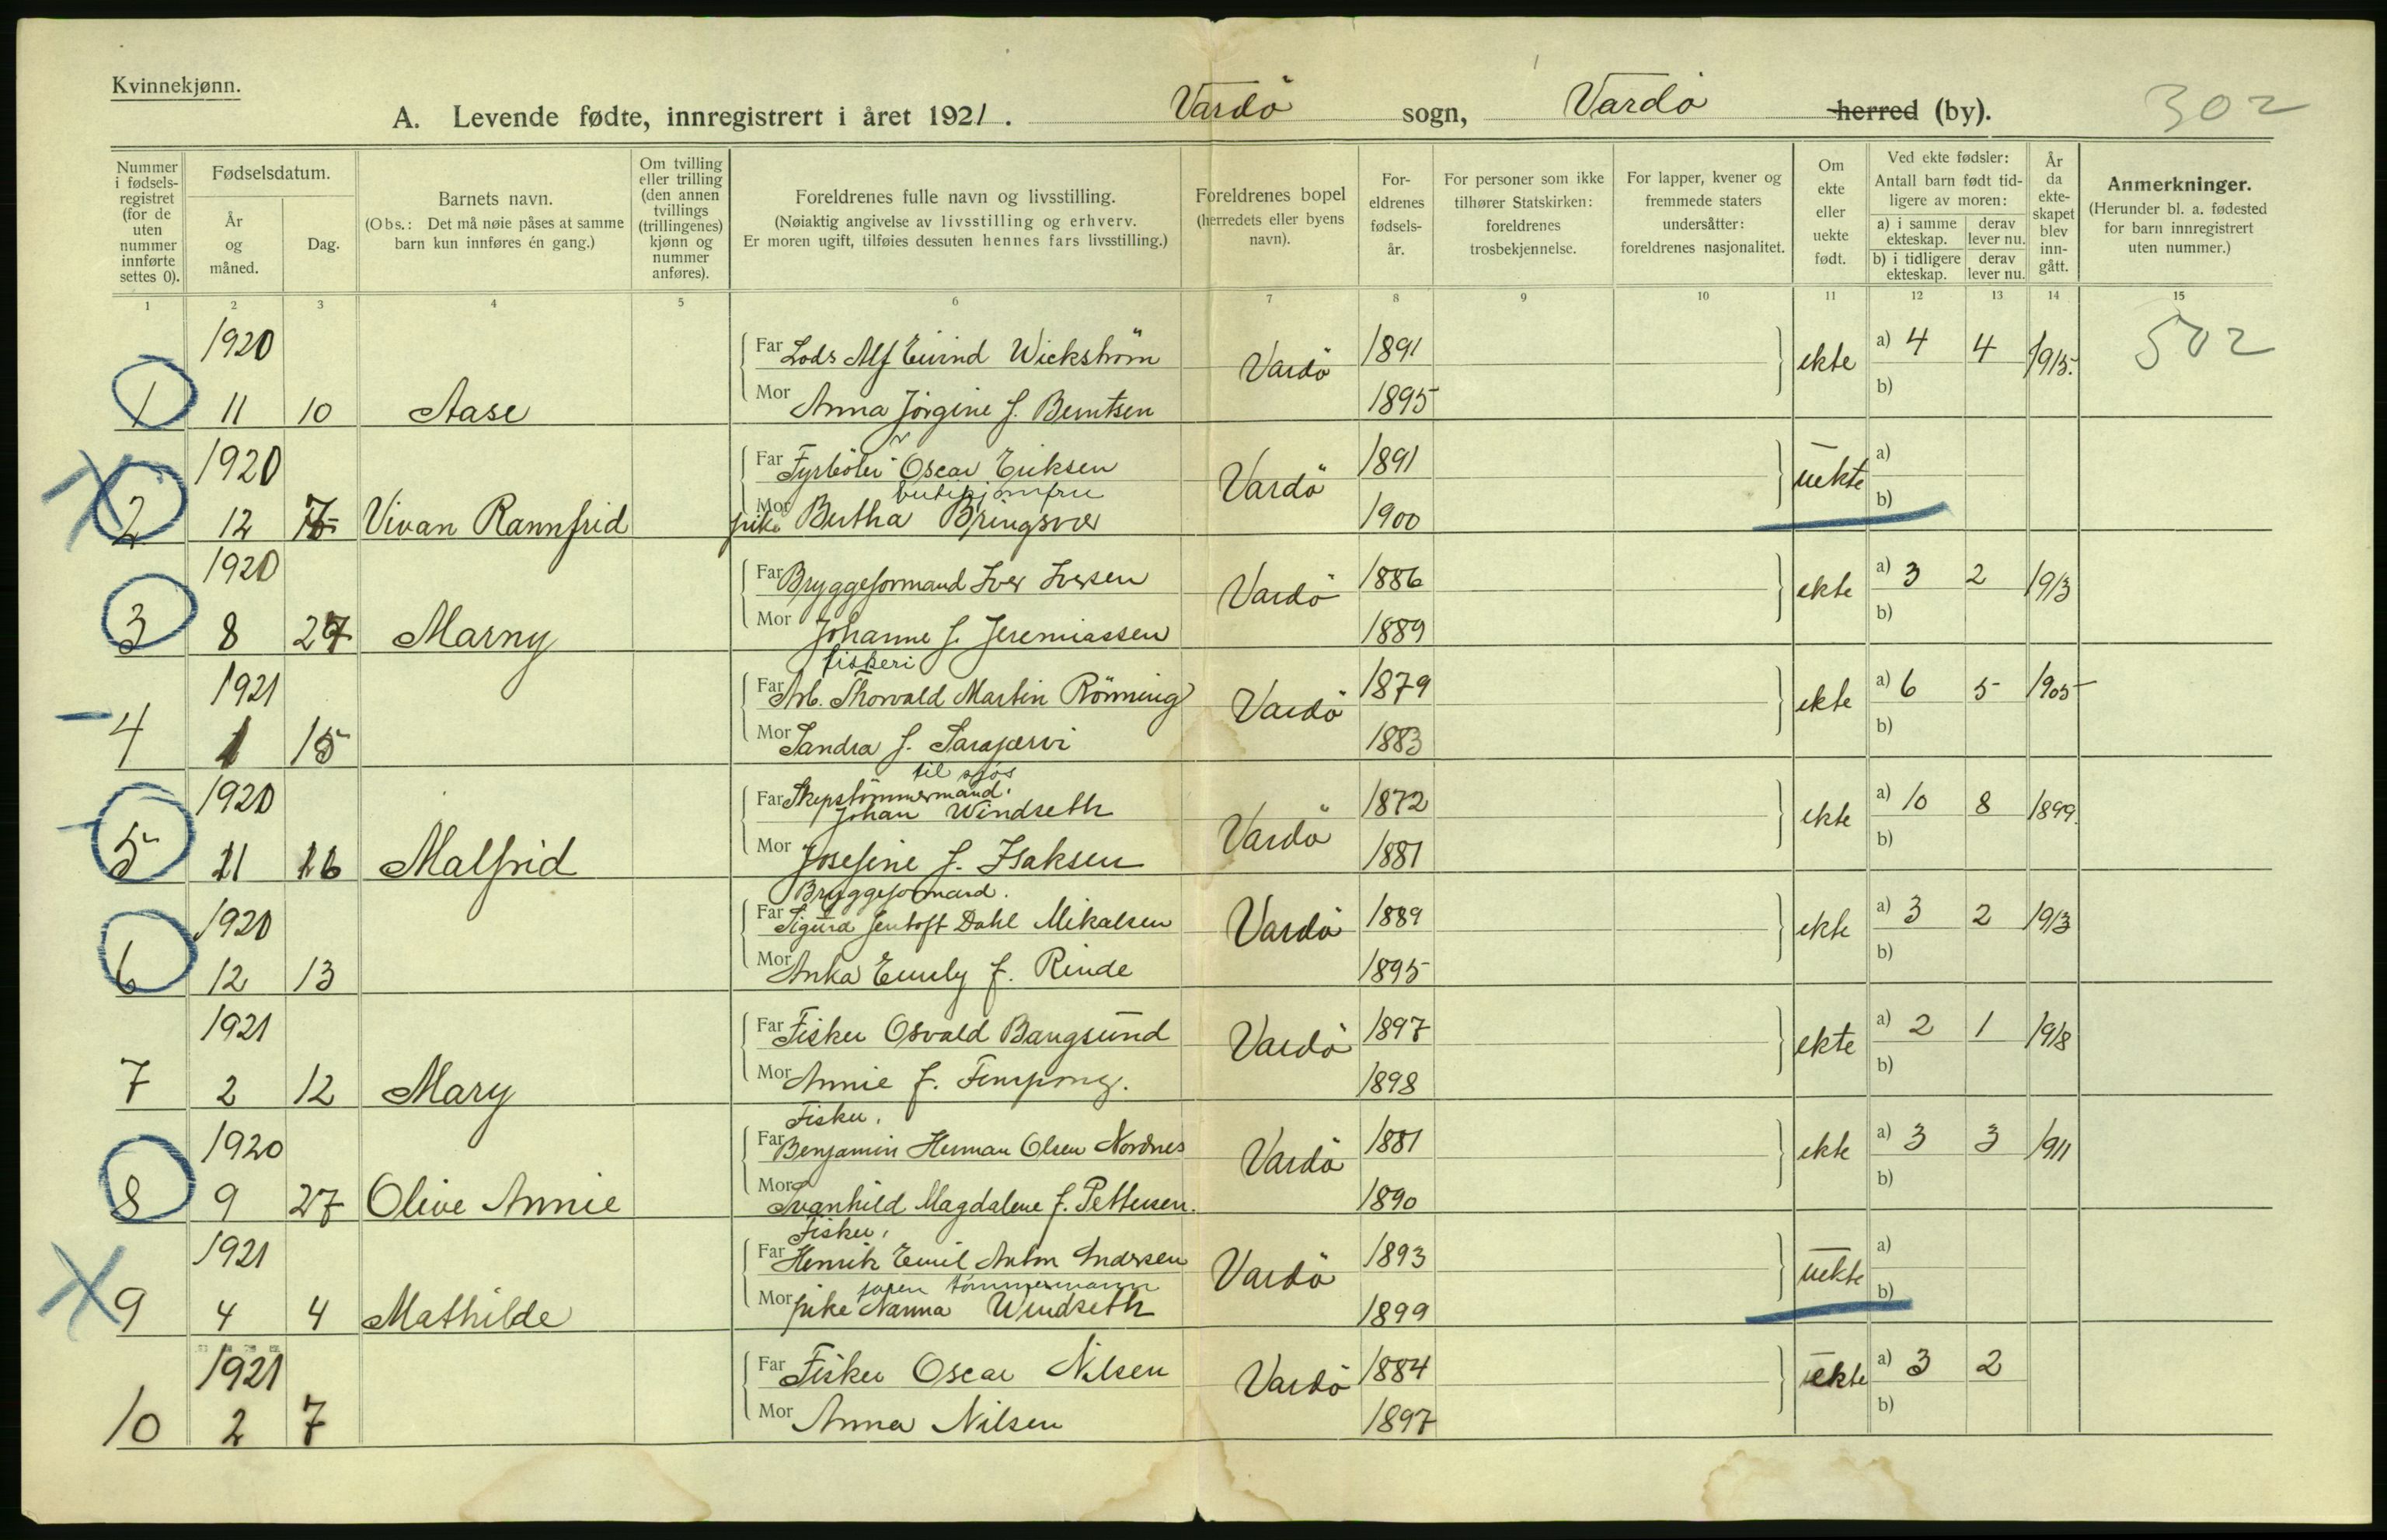 Kvinnekjønn.
A. Levende fødte, innregistrert i året 1921. Vardö sogn, Vardö herred (by). 302
Nummer i fødsels-registret (for de uten nummer innførte settes 0).
Fødselsdatum.
År og måned.
Dag.
Barnets navn.
(Obs.: Det må nøie påses at samme barn kun innføres én gang.)
Om tvilling eller trilling (den annen tvillings (trillingenes) kjønn og nummer anføres).
Foreldrenes fulle navn og livsstilling.
(Nøiaktig angivelse av livsstilling og erhverv.
Er moren ugift, tilføies dessuten hennes fars livsstilling.)
Foreldrenes bopel (herredets eller byens navn).
For-eldrenes fødsels-år.
For personer som ikke tilhører Statskirken: foreldrenes trosbekjennelse.
For lapper, kvener og fremmede staters undersåtter: foreldrenes nasjonalitet.
Om ekte eller uekte født.
Ved ekte fødsler: Antall barn født tid-ligere av moren:
a) i samme ekteskap. derav lever nu.
b) i tidligere ekteskap. derav lever nu.
År da ekte-skapet blev inn-gått.
Anmerkninger.
(Herunder bl. a. fødested for barn innregistrert uten nummer.)
1 2 3 4 5 6 7 8 9 10 11 12 13 14 15
1920 Far Lods Alf Eivind Wickström Vardö 1891 ekte a) 4 4 1915. 502
1 11 10 Aase Mor Anna Jörgine f. Berntsen 1895 b)
1920 Far Fyrböter Oscar Eriksen Vardö 1891 uekte a)
butikjomfru
2 12 Vivan Rannfrid Mor pike Bertha Bringsvor 1900 b)
1920 Far Bryggeformand Iver Iversen Vardö 1886 ekte a) 3 2 1913
3 8 27 Marny Mor Johanne f. Jeremiassen 1889 b)
fiskeri
1921 Far Arb. Thorvald Martin Rönning Vardö 1879 ekte a) 6 5 1905
4 1 15 Mor Sandra f. Sarajærvi 1883 b)
til sjøs
1920 Far Skipstömmermand. Johan Windseth Vardö 1872 ekte a) 10 8 1899.
5 11 26 Malfrid Mor Josefine f. Isaksen 1881 b)
Bryggeformand.
1920 Far Sigurd Jentoft Dahl Mikalsen Vardö 1889 ekte a) 3 2 1913
6 12 13 Mor Anka Emely f. Rinde 1895 b)
1921 Far Fisker Osvald Bangsund Vardö 1897 ekte a) 2 1 1918
7 2 12 Mary Mor Annie f. 1898 b)
Fisker.
1920 Far Benjamin Herman Olsen Nordnes Vardö 1881 ekte a) 3 3 1911
8 9 27 Olive Annie Mor Svanhild Magdalene f. Pettersen. 1890 b)
Fisker.
1921 Far Henrik Emil Anton Andersen Vardö 1893 uekte a)
faren tömmermann
9 4 4 Mathilde Mor pike Nanna Windseth 1899 b)
1921 Far Fisker Oscar Nilsen Vardö 1884 ekte a) 3 2
10 2 7 Mor Anna Nilsen 1897 b)